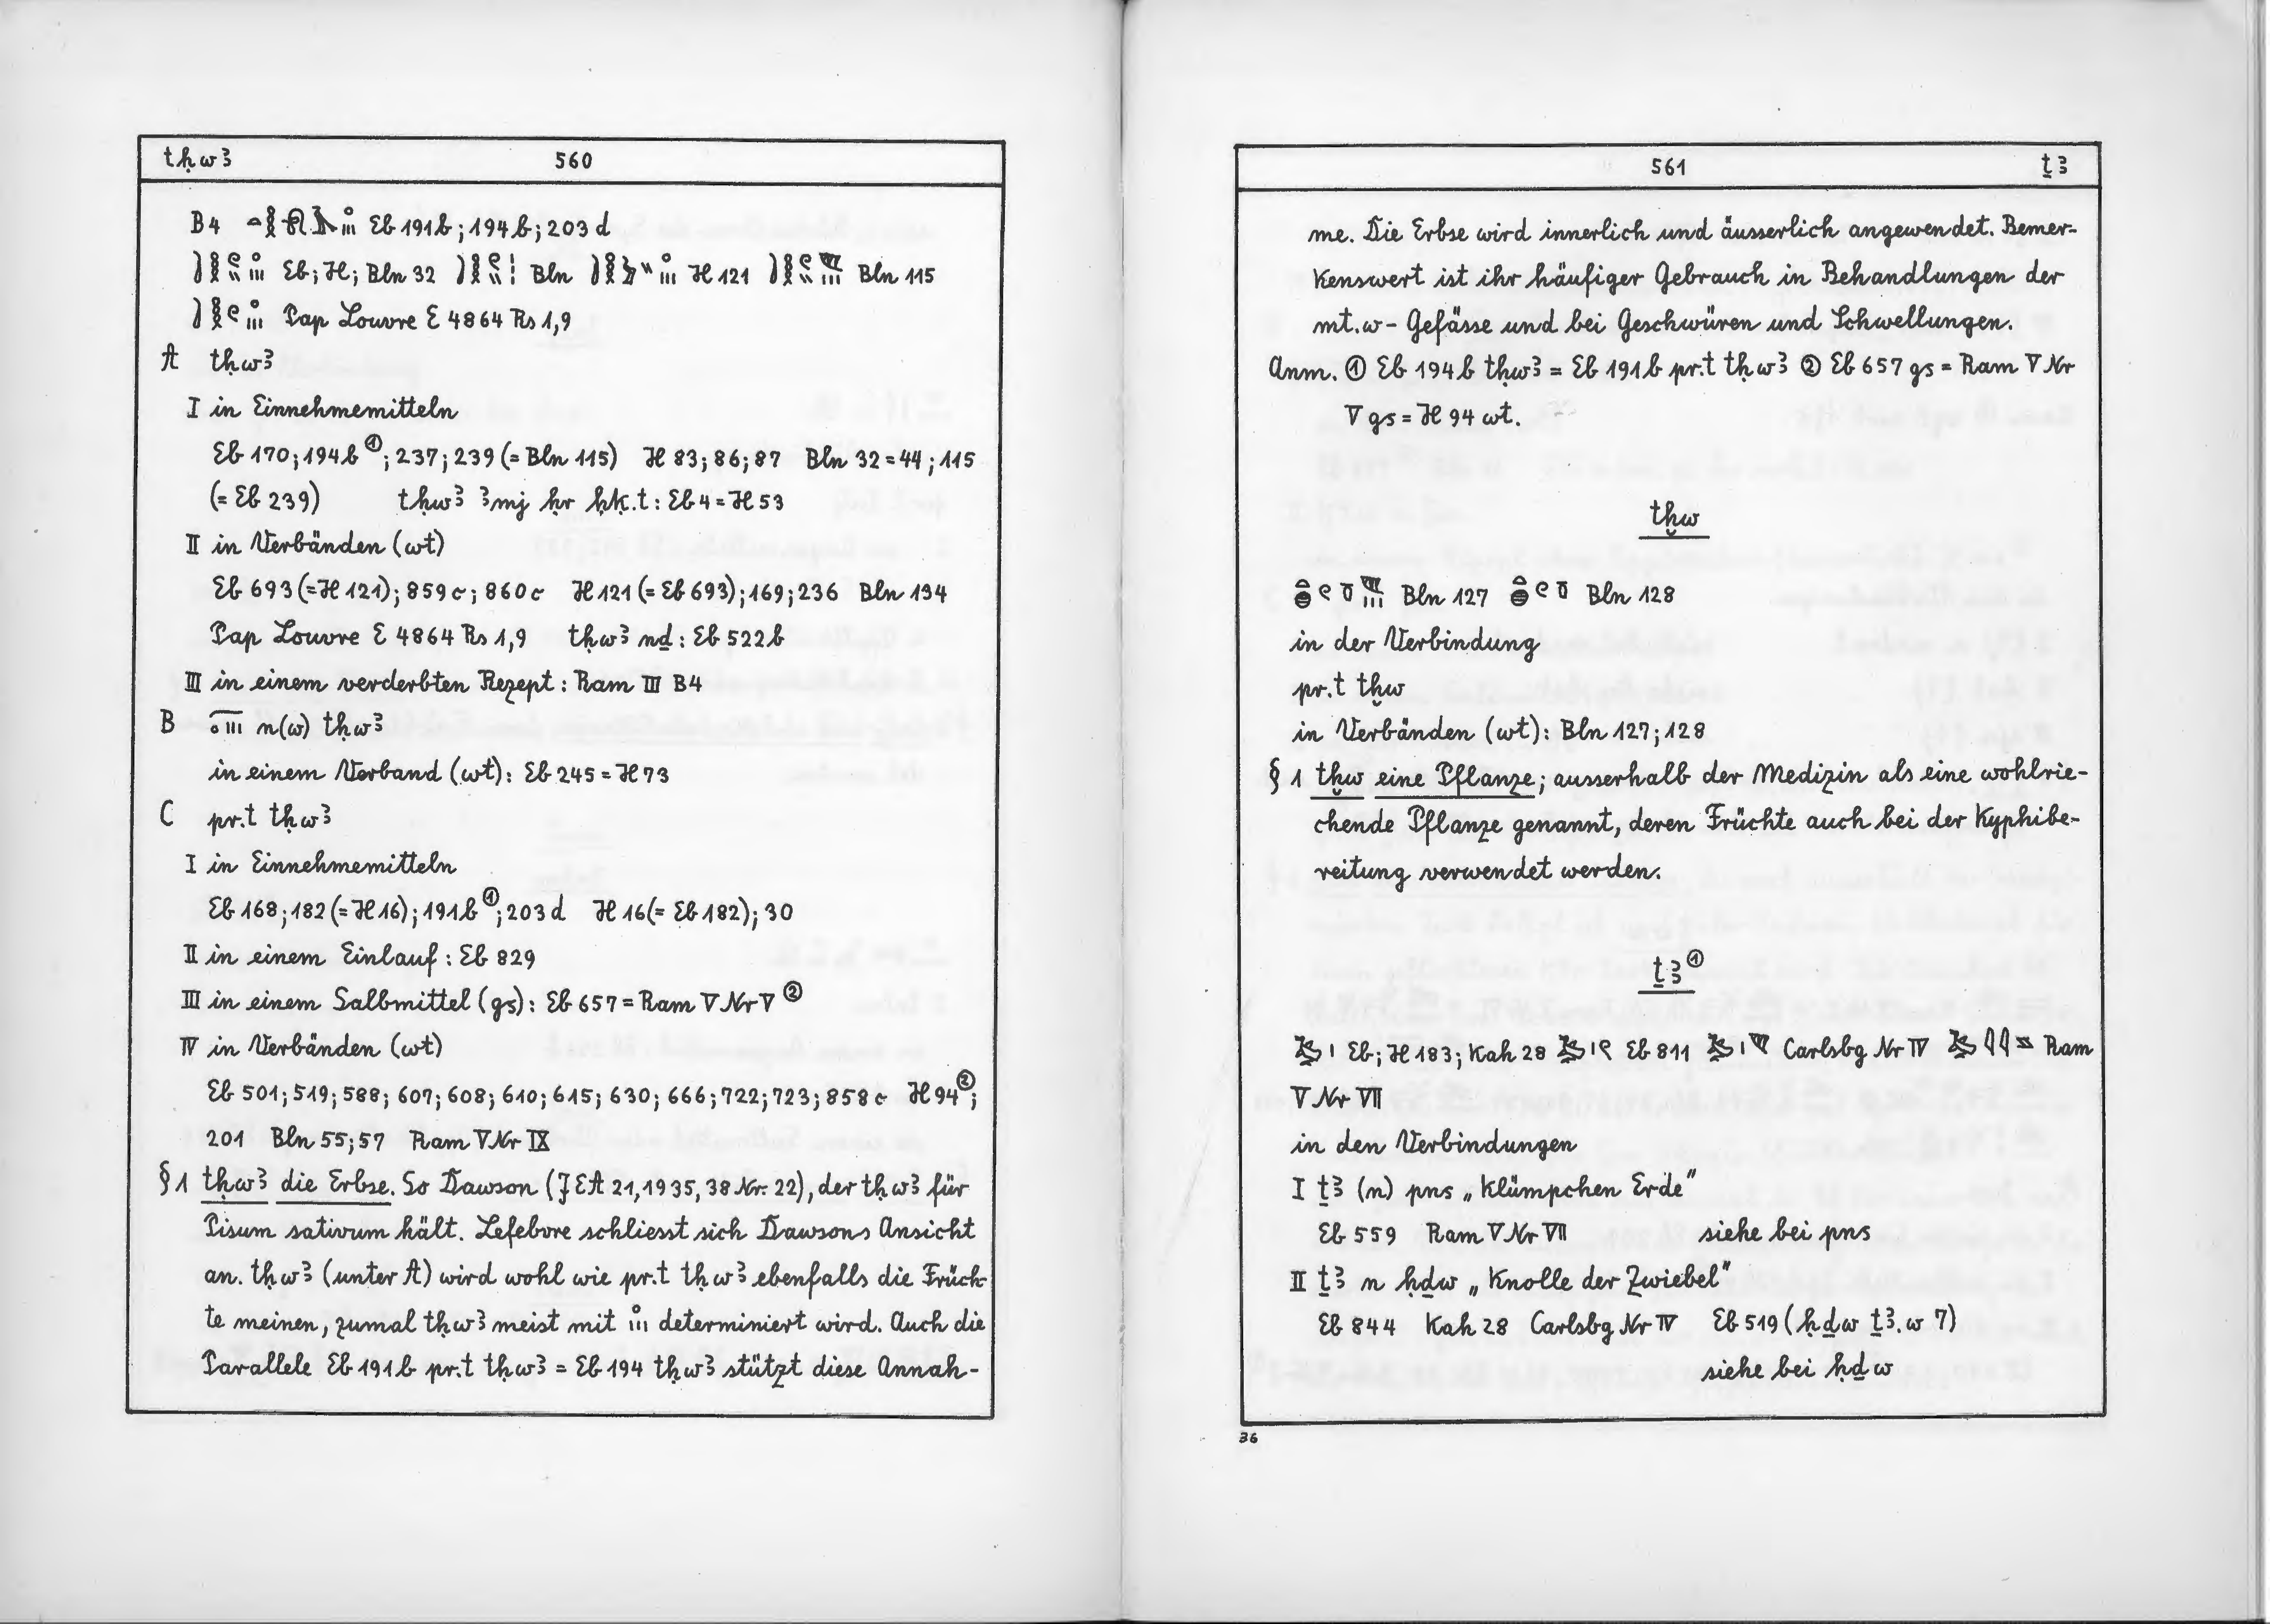 tḥwꜣ 560
B4 Eb 191b; 194b; 203d
Eb; H; Bln 32 Bln H 121 Bln 115
Pap Louvre E 4864 Rs 1,9
A tḥwꜣ
I in Einnehmemitteln
Eb 170; 194b ①; 237; 239 (= Bln 115) H 83; 86; 87 Bln 32 = 44; 115
(= Eb 239) tḥwꜣ ꜣmj ḥr ḥḳ.t: Eb 4 = H 53
II in Verbänden (wt)
Eb 693 (= H 121); 859c; 860c H 121 (= Eb 693); 169; 236 Bln 134
Pap Louvre E 4864 Rs 1,9 tḥwꜣ nḏ: Eb 522b
III in einem verderbten Rezept: Ram III B4
B n(w) tḥwꜣ
in einem Verband (wt): Eb 245 = H 73
C pr.t tḥwꜣ
I in Einnehmemitteln
Eb 168; 182 (= H 16); 191b ①; 203d H 16 (= Eb 182); 30
II in einem Einlauf: Eb 829
III in einem Salbmittel (gs): Eb 657 = Ram V Nr V ②
IV in Verbänden (wt)
Eb 501; 519; 588; 607; 608; 610; 615; 630; 666; 722; 723; 858c H 94 ②;
201 Bln 55; 57 Ram V Nr IX
§ 1 tḥwꜣ die Erbse. So Dawson (JEA 21, 1935, 38 Nr. 22), der tḥwꜣ für
Pisum sativum hält. Lefebvre schliesst sich Dawsons Ansicht
an. tḥwꜣ (unter A) wird wohl wie pr.t tḥwꜣ ebenfalls die Früch-
te meinen, zumal tḥwꜣ meist mit determiniert wird. Auch die
Parallele Eb 191b pr.t tḥwꜣ = Eb 194 tḥwꜣ stützt diese Annah-
561 ṯꜣ
me. Die Erbse wird innerlich und äusserlich angewendet. Bemer-
kenswert ist ihr häufiger Gebrauch in Behandlungen der
mt.w-Gefässe und bei Geschwüren und Schwellungen.
Anm. ① Eb 194b tḥwꜣ = Eb 191b pr.t tḥwꜣ ② Eb 657 gs = Ram V Nr
V gs = H 94 wt.
tḫw
Bln 127 Bln 128
in der Verbindung
pr.t tḫw
in Verbänden (wt): Bln 127; 128
§ 1 tḫw eine Pflanze; ausserhalb der Medizin als eine wohlrie-
chende Pflanze genannt, deren Früchte auch bei der Kyphibe-
reitung verwendet werden.
ṯꜣ ①
Eb; H 183; Kah 28 Eb 811 Carlsbg Nr IV Ram
V Nr VII
in den Verbindungen
I ṯꜣ (n) pns „Klümpchen Erde"
Eb 559 Ram V Nr VII siehe bei pns
II ṯꜣ n ḥḏw „Knolle der Zwiebel"
Eb 844 Kah 28 Carlsbg Nr IV Eb 519 (ḥḏw ṯꜣ.w 7)
siehe bei ḥḏw
36